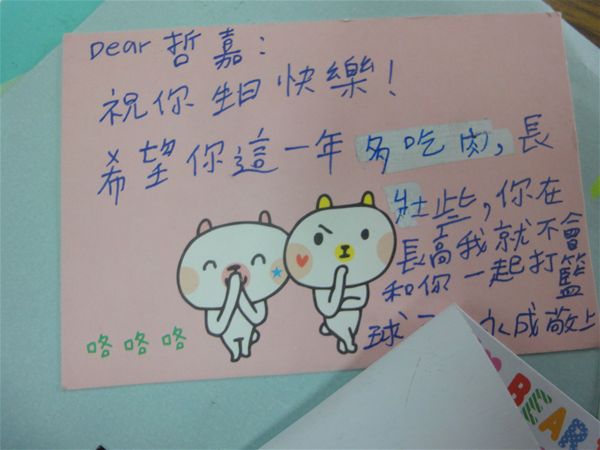 Dear 哲嘉:
祝你生日快樂!
希望你這一年多吃肉,長
壯些,你在
長高我就不會
和你一起打籃
球
成敬上
咯咯咯
BEAR